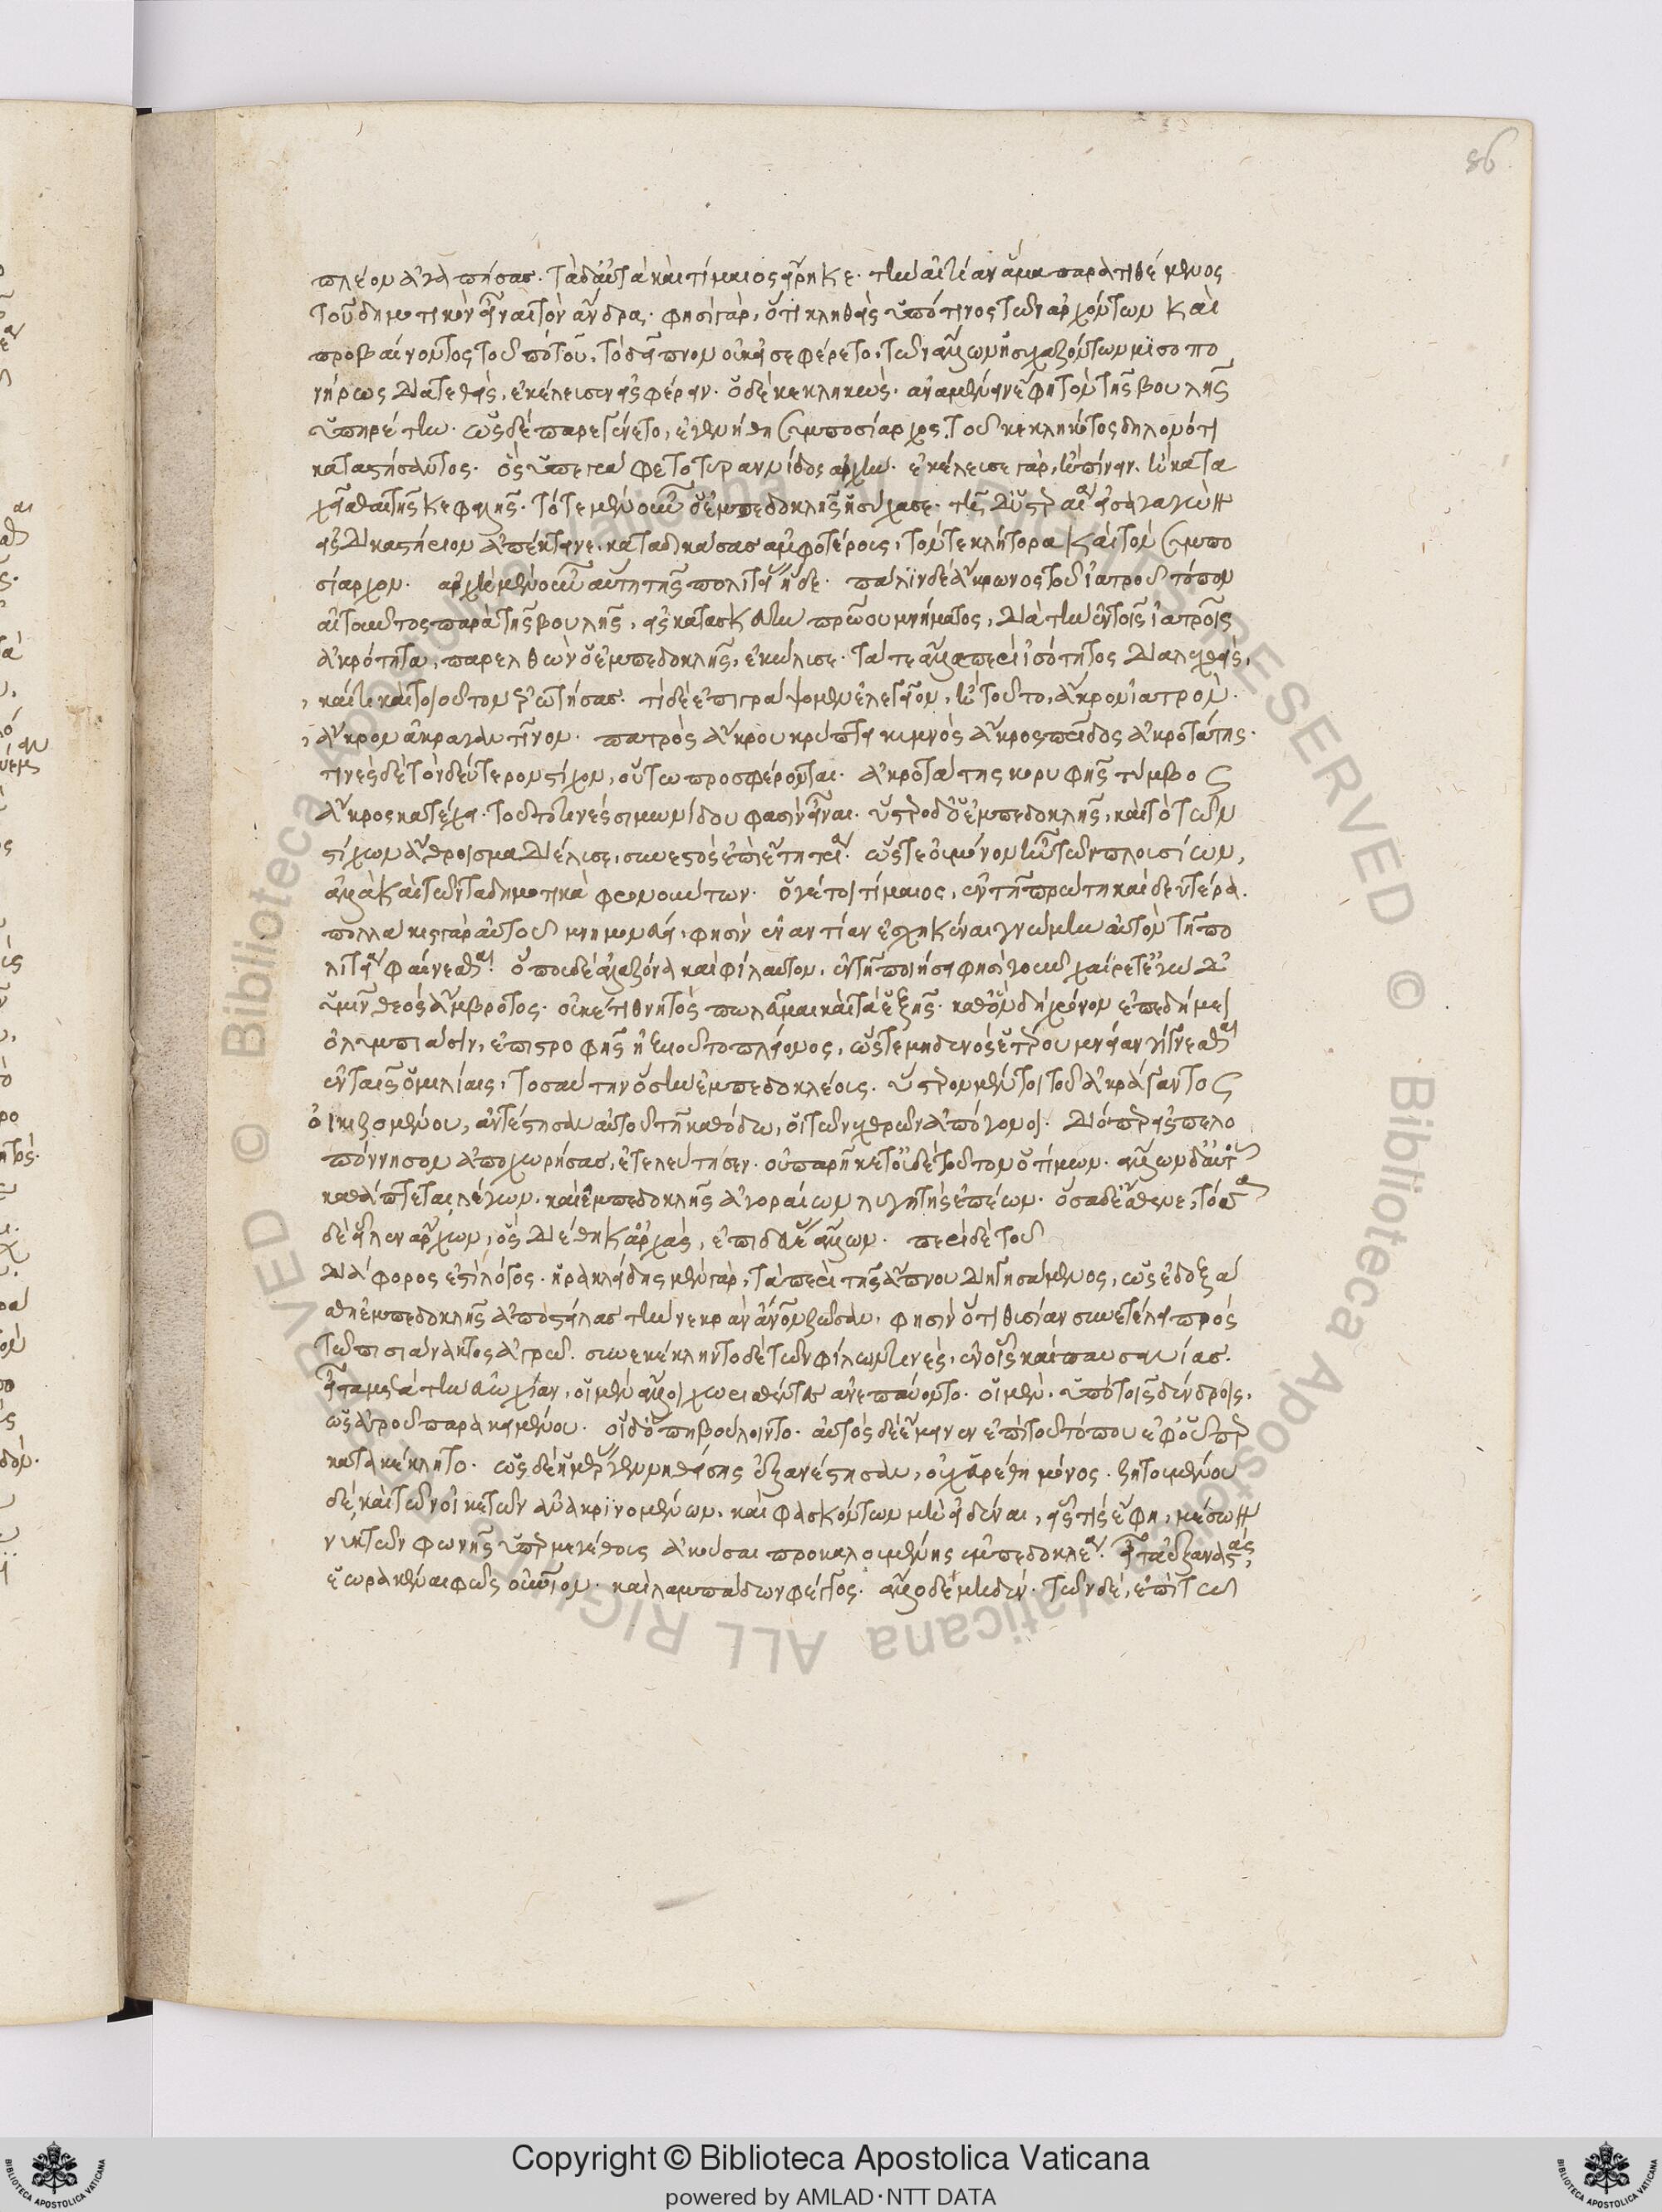 86
πλέον ἀγαπήσας. τὰ δ' αὐτὰ καὶ τίμαιος εἴρηκε. τὴν αἰτίαν ἅμα παρατιθέμενος
τοῦ δημοτικὸν εἶναι τὸν ἄνδρα. φησὶ γὰρ, ὅτι κληθεὶς ὑπό τινος τῶν ἀρχόντων καὶ
προβαίνοντος τοῦ πότου, τὸ δεῖπνον οὐκ εἰσεφέρετο, τῶν ἄλλων ἡσυχαζόντων μισοπο
νήρως διατεθεὶς, ἐκέλευσεν εἰσφέρειν. ὁ δὲ κεκληκὼς, ἀναμένειν ἔφη τὸν τῆς βουλῆς
ὑπηρέτην. ὡς δὲ παρεγένετο, ἐγενήθη συμποσίαρχος. τοῦ κεκληκότος δηλονότι
καταστήσαντος. ὃς ὑπεγράφετο τυραννίδος ἀρχήν. ἐκέλευσε γὰρ, ἢ πίνειν. ἢ κατα
χεῖσθαι τῆς κεφαλῆς. τότε μὲν οὖν ὁ ἐμπεδοκλῆς ἡσύχασε. τῇ δ' ὑστεραίᾳ εἰσαγαγὼν
εἰς δικαστήριον ἀπέκτεινε, καταδικάσας ἀμφοτέρους, τόν τε κλήτορα καὶ τὸν συμπο
σίαρχον. ἀρχὴ μὲν οὖν αὐτῇ τῆς πολιτείας ἥδε. πάλιν δὲ ἄκρωνος τοῦ ἰατροῦ τόπον
αἰτοῦντος παρὰ τῆς βουλῆς, εἰς κατασκευὴν πρώου μνήματος, διὰ τὴν ἐν τοῖς ἰατροῖς
ἀκρότητα, παρελθὼν ὁ ἐμπεδοκλῆς, ἐκώλυσε. τά τε ἄλλα περὶ ἰσότητος διαλεχθεὶς,
καί τι καὶ τοιοῦτον ἐρωτήσας. τί δὲ ἐπιγράψομεν ἐλεγεῖον, ἢ τοῦτο, ἄκρον ἰατρὸν
ἄκρον ἀκραγαντῖνον. πατρὸς ἄκρου κρύπτει κρημνὸς ἄκρος πατρίδος ἀκροτάτης.
τινὲς δὲ τὸν δεύτερον στίχον, οὕτω προσφέρονται. ἀκροτάτης κορυφῆς τύμβος
ἄκρος κατέχει. τοῦτό τινές σιμωνίδου φασὶν εἶναι. ὕστερον δ' ὁ ἐμπεδοκλῆς, καὶ τὸ τῶν
χιλίων ἄθροισμα διέλυσε, συνεστὸς ἐπὶ ἔτη τρία. ὥστε οὐ μόνον ἦν τῶν πλουσίων,
ἀλλὰ καὶ τῶν τὰ δημοτικὰ φρονούντων. ὅ γέ τοι τίμαιος, ἐν τῇ πρώτῃ καὶ δευτέρᾳ.
πολλάκις γὰρ αὐτοῦ μνημονεύει, φησὶν ἐναντίαν ἐσχηκέναι γνώμην αὐτὸν τῇ πο
λιτείᾳ φαίνεσθαι. ὅπου δὲ ἀλαζόνα καὶ φίλαυτον, ἐν τῇ ποιήσει φησὶ γοῦν χαίρετε ἐγὼ δ'
ὑμῖν θεὸς ἄμβροτος. οὐκέτι θνητὸς πωλεῦμαι καὶ τὰ ἑξῆς. καθ' ὃν δὴ χρόνον ἐπεδήμει
ὀλυμπίασιν, ἐπιστροφῆς ἠξιοῦτο πλείονος, ὥστε μηδενὸς ἑτέρου μνείαν γίγνεσθαι
ἐν ταῖς ὁμιλίαις, τοσαύτην ὅσην ἐμπεδοκλέους. ὕστερον μέντοι τοῦ ἀκράγαντος
οἰκιζομένου, ἀντέστησαν αὐτοῦ τῇ καθόδῳ, οἱ τῶν ἐχθρῶν ἀπόγονοι. διόπερ εἰς πελο
πόννησον ἀποχωρήσας, ἐτελεύτησεν. οὐ παρῆκε τὸ δὲ τοῦτον ὁ τίμων. ἀλλ' ὧδ' αὐτοῦ
καθάπτεται λέγων. καὶ ἐμπεδοκλῆς ἀγοραίων ληκητὴς ἐπέων. ὅσα δὲ ἔσθενε, τόσα
δὲ εἷλεν ἄρχων, ὃς διέθηκ' ἀρχὰς, ἐπιδευέας ἄλλων. περὶ δὲ τοῦ
διάφορος ἐστὶ λόγος. ἡρακλείδης μὲν γὰρ, τὰ περὶ τῆς ἄπνου διηγησάμενος, ὡς ἐδοξά
σθη ἐμπεδοκλῆς ἀποστείλας τὴν νεκρὰν ἄνθρωπον ζῶσαν, φησὶν ὅτι θυσίαν συνετέλει πρὸς
τῷ πεισιάνακτος ἀγρῷ. συνεκέκληντο δὲ τῶν φίλων τινὲς, ἐν οἷς καὶ παυσανίας.
εἶτα μετὰ τὴν εὐωχίαν, οἱ μὲν ἄλλοι χωρισθέντες ἀνεπαύοντο. οἱ μὲν, ὑπὸ τοῖς δένδροις,
ὡς ἀγροῦ παρακειμένου. οἱ δ' ὅπῃ βούλοιντο. αὐτὸς δὲ ἔμεινεν ἐπὶ τοῦ τόπου ἐφ' οὗπερ
κατακέκλητο. ὡς δὲ ἡμέρας γενηθείσης ἐξανέστησαν, οὐχ εὑρέθη μόνος. ζητουμένου
δὲ, καὶ τῶν οἰκετῶν ἀνακρινομένων, καὶ φασκόντων μὴ εἰδέναι, εἷς τὶς ἔφη, μέσων
νυκτῶν φωνῆς ὑπερμεγέθους ἀκοῦσαι προκαλουμένης ἐμπεδοκλέα. εἶτα ἐξαναστὰς,
ἑωρακέναι φῶς οὐράνιον. καὶ λαμπάδων φέγγος. ἄλλο δὲ μηδέν. τῶν δὲ, ἐπὶ τῷ
Copyright © Biblioteca Apostolica Vaticana
powered by AMLAD·NTT DATA